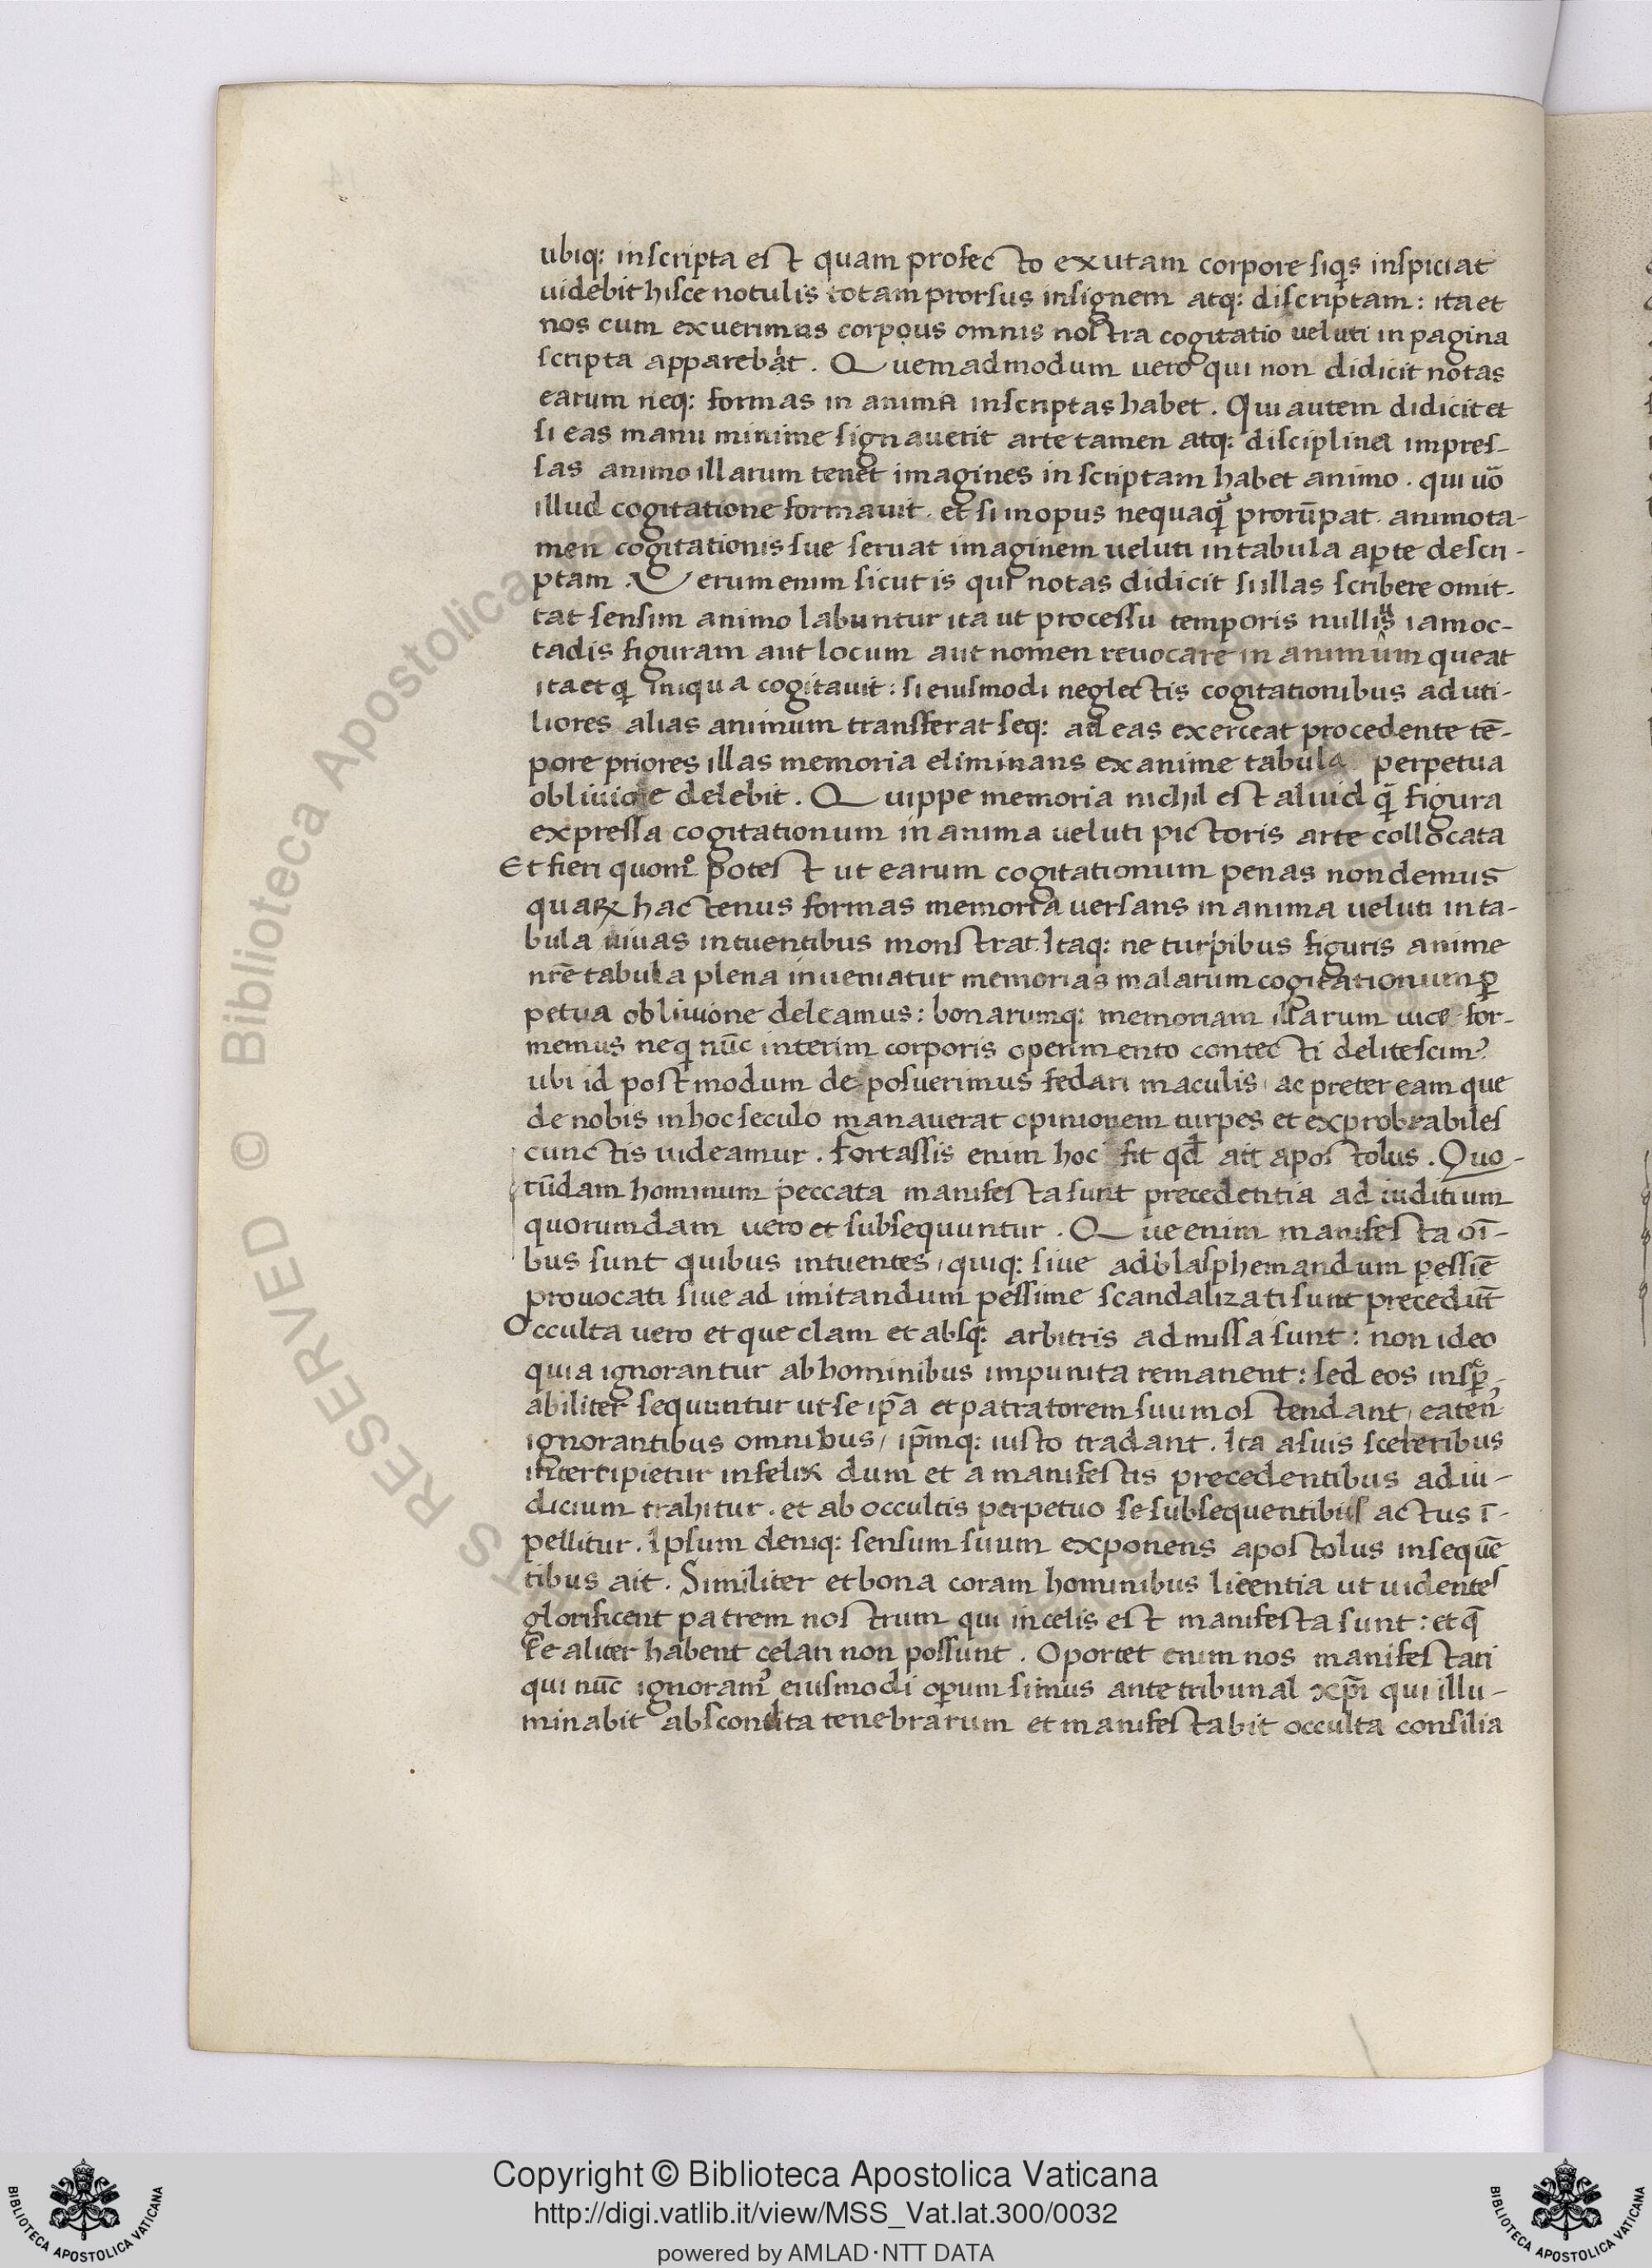 ubiq: inscripta est quam profecto exutam corpore siqis inspiciat
uidebit hisce notulis totam prorsus insignem atq: discriptam: ita et
nos cum exuerimus corpous omnis nostra cogitatio ueluti in pagina
scripta apparebat. Quemadmodum uero qui non didicit notas
earum neq: formas in anima inscriptas habet. Qui autem didicit et
si eas manu minime signauerit arte tamen atq: disciplina impres-
sas animo illarum tenet imagines inscriptam habet animo. qui uō
illud cogitatione formauit. et si in opus nequaq̄ prorūpat. animo ta-
men cogitationis sue seruat imaginem ueluti in tabula aꝑte descri-
ptam. Verum enim sicut is qui notas didicit si illas scribere omit-
tat sensim animo labuntur ita ut processu temporis nullius iam oc-
tadis figuram aut locum aut nomen reuocare in animum queat
ita et q iniqua cogitauit: si eiusmodi neglectis cogitationibus ad uti-
liores alias animum transferat seq: ad eas exerceat procedente tē-
pore priores illas memoria eliminans ex anime tabula perpetua
obliuione delebit. Quippe memoria nichil est aliud q̄ figura
expressa cogitationum in anima ueluti pictoris arte collocata
Et fieri quomo potest ut earum cogitationum penas non demus
quaꝝ hactenus formas memoria uersans in anima ueluti in ta-
bula uiuas intuentibus monstrat. Itaq: ne turpibus figuris anime
nrē tabula plena inueniatur memorias malarum cogitationum ꝑ
petua obliuione deleamus: bonarumq: memoriam illarum uice for-
memus neq nūc interim corporis operimento contecti delitescimꝰ
ubi id postmodum deposuerimus fedari maculis, ac preter eam que
de nobis in hoc seculo manauerat opinionem turpes et exprobrabiles
cunctis uideamur. Fortassis enim hoc fit qđ ait apostolus. Quo-
rūdam hominum peccata manifesta sunt precedentia ad iuditium
quorumdam uero et subsequuntur. Que enim manifesta oī-
bus sunt quibus intuentes, quiq: siue ad blasphemandum pessiē
prouocati siue ad imitandum pessime scandalizati sunt precedūt
Occulta uero et que clam et absq: arbitris admissa sunt: non ideo
quia ignorantur ab hominibus impunita remanent: sed eos inseꝑ-
abiliter sequuntur ut se ip̄a et patratorem suum ostendant, eatenꝰ
ignorantibus omnibus, ip̄mq: iusto tradant. Ita a suis sceleribus
intercipietur infelix dum et a manifestis precedentibus ad iu-
dicium trahitur. et ab occultis perpetuo se subsequentibus actus ī-
pellitur. Ipsum deniq: sensum suum exponens apostolus in sequē
tibus ait. Similiter et bona coram hominibus licentia ut uidentes
glorificent patrem nostrum qui in celis est manifesta sunt: et q̄
se aliter habent celari non possunt. Oportet enim nos manifestari
qui nūc ignoramꝰ eiusmodi oꝑum simus ante tribunal xp̄i qui illu-
minabit abscondita tenebrarum et manifestabit occulta consilia
© Biblioteca Apostolica
RESERVED
Copyright © Biblioteca Apostolica Vaticana
http://digi.vatlib.it/view/MSS_Vat.lat.300/0032
powered by AMLAD·NTT DATA
BIBLIOTECA APOSTOLICA VATICANA
BIBLIOTECA APOSTOLICA VATICANA